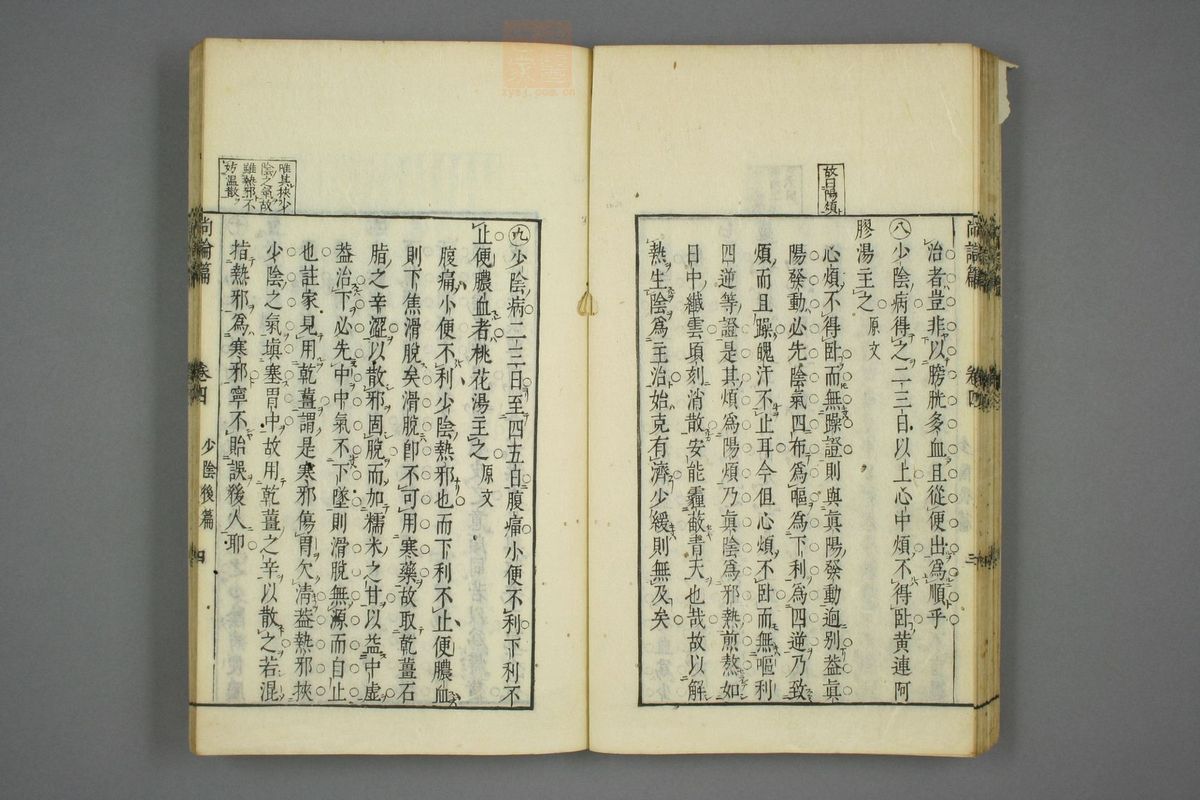 尚論篇
卷四
三
故曰陽煩
治者豈非以膀胱多血且從便出爲順乎
八少陰病得之二三日以上心中煩不得臥黃連阿
膠湯主之 原文
心煩不得臥而無躁證則與眞陽發動迥别葢眞
陽發動必先陰氣四布爲嘔爲下利爲四逆乃致
煩而且躁魄汗不止耳今但心煩不臥而無嘔利
四逆等證是其煩爲陽煩乃眞陰爲邪熱煎熬如
日中纎雲頃刻消散安能霾蔽青天也哉故以解
熱生陰爲主治始克有濟少緩則無及矣
唯其挾少
陰之氣故
雖熱邪不
妨温散
九少陰病二三日至四五日腹痛小便不利下利不
止便膿血者桃花湯主之 原文
腹痛小便不利少陰熱邪也而下利不止便膿血
則下焦滑脫矣滑脫卽不可用寒藥故取乾薑石
脂之辛澀以散邪固脫而加糯米之甘以益中虛
葢治下必先中中氣不下墜則滑脫無源而自止
也註家見用乾薑謂是寒邪傷胃欠淸葢熱邪挾
少陰之氣塡塞胃中故用乾薑之辛以散之若混
指熱邪爲寒邪寧不貽誤後人耶
尚論篇
卷四
少陰後篇
四
zysj.com.cn